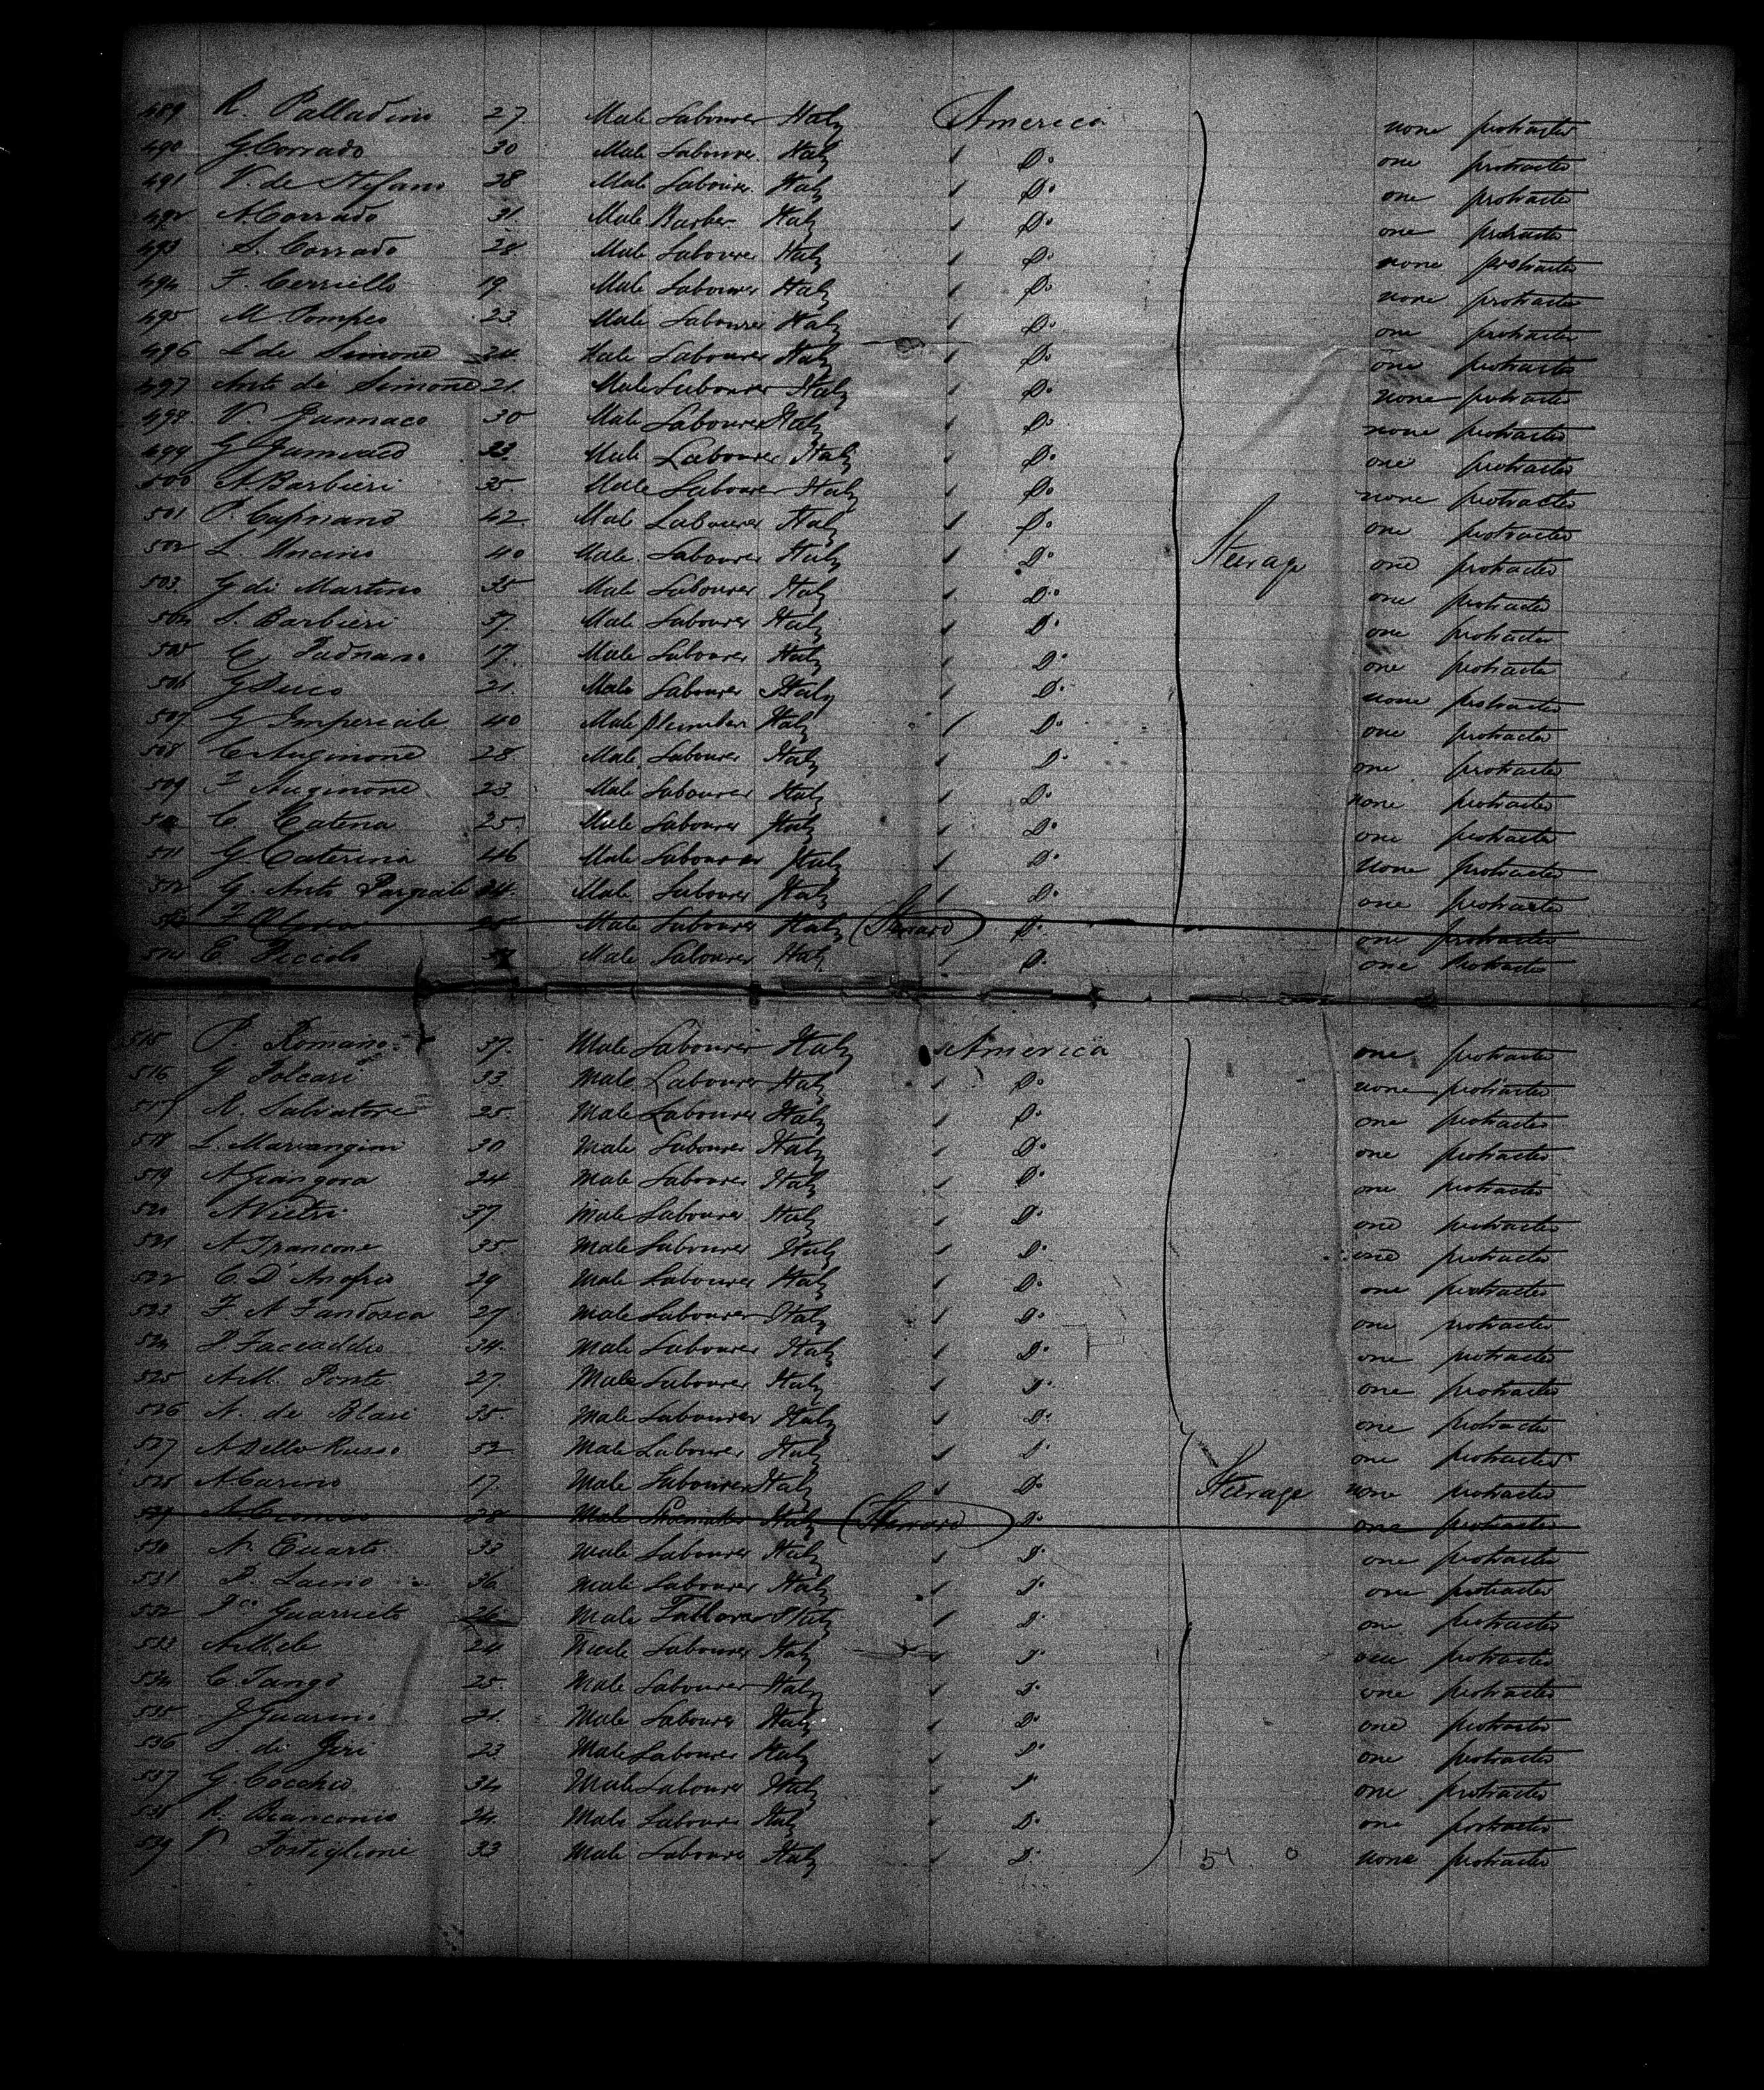 489 R. Palladino 27 Male Labourer Italy America none protracted
490 G. Corrado 30 Male Labourer Italy Do. one protracted
491 V. de Stefano 28 Male Labourer Italy Do. one protracted
492 A. Corrado 31 Male Barber Italy Do. one protracted
493 S. Corrado 28 Male Labourer Italy Do. none protracted
494 F. Cerriello 19 Male Labourer Italy Do. none protracted
495 M. Pompeo 23 Male Labourer Italy Do. one protracted
496 L. de Simone 24 Male Labourer Italy Do. one protracted
497 Anto. de Simone 21 Male Labourer Italy Do. none protracted
498 V. Jannaco 30 Male Labourer Italy Do. none protracted
499 G. 23 Male Labourer Italy Do. one protracted
500 A. Barbieri 35 Male Labourer Italy Do. none protracted
501 P. Capriano 42 Male Labourer Italy Do. one protracted
502 L. 40 Male Labourer Italy Do. Steerage one protracted
503 G. di Martino 35 Male Labourer Italy Do. one protracted
504 S. Barbieri 37 Male Labourer Italy Do. one protracted
505 17 Male Labourer Italy Do. one protracted
506 G. 21 Male Labourer Italy Do. none protracted
507 G. Imperiale 40 Male Plumber Italy Do. one protracted
508 C. Auginone 28 Male Labourer Italy Do. one protracted
509 F. Auginone 23 Male Labourer Italy Do. none protracted
510 C. Catena 25 Male Labourer Italy Do. one protracted
511 G. Caterina 46 Male Labourer Italy Do. none protracted
512 G. Anto. Pasquale 24 Male Labourer Italy Do. one protracted
513 F. Male Labourer Italy Do. one protracted
514 E. Piccolo Male Labourer Italy Do. one protracted
515 P. Romano 37 Male Labourer Italy America one protracted
516 G. Polcari 33 Male Labourer Italy Do. none protracted
517 R. Salvatore 25 Male Labourer Italy Do. one protracted
518 L. Marrangini 30 Male Labourer Italy Do. one protracted
519 A. Giangora 24 Male Labourer Italy Do. one protracted
520 A. Vietri 37 Male Labourer Italy Do. one protracted
521 A. Trancone 35 Male Labourer Italy Do. one protracted
522 C. D'Anofrio 29 Male Labourer Italy Do. one protracted
523 F. A. Fandosca 27 Male Labourer Italy Do. one protracted
524 34 Male Labourer Italy Do. one protracted
525 Ponte 27 Male Labourer Italy Do. one protracted
526 A. de Blasi 35 Male Labourer Italy Do. one protracted
527 A. Dello Russo 52 Male Labourer Italy Do. one protracted
528 A. Carino 17 Male Labourer Italy Do. Steerage none protracted
529 28 Male Shoemaker Italy Do. one protracted
530 N. Euarto 33 Male Labourer Italy Do. one protracted
531 P. 36 Male Labourer Italy Do. one protracted
532 Guarrieto 26 Male Italy Do. one protracted
533 24 Male Labourer Italy Do. one protracted
534 C. Tango 25 Male Labourer Italy Do. one protracted
535 J. Guarino 21 Male Labourer Italy Do. one protracted
536 23 Male Labourer Italy Do. one protracted
537 G. Cocchio 34 Male Labourer Italy Do. one protracted
538 R. Branconio 24 Male Labourer Italy Do. one protracted
539 P. Postiglione 33 Male Labourer Italy Do. 51 0 none protracted